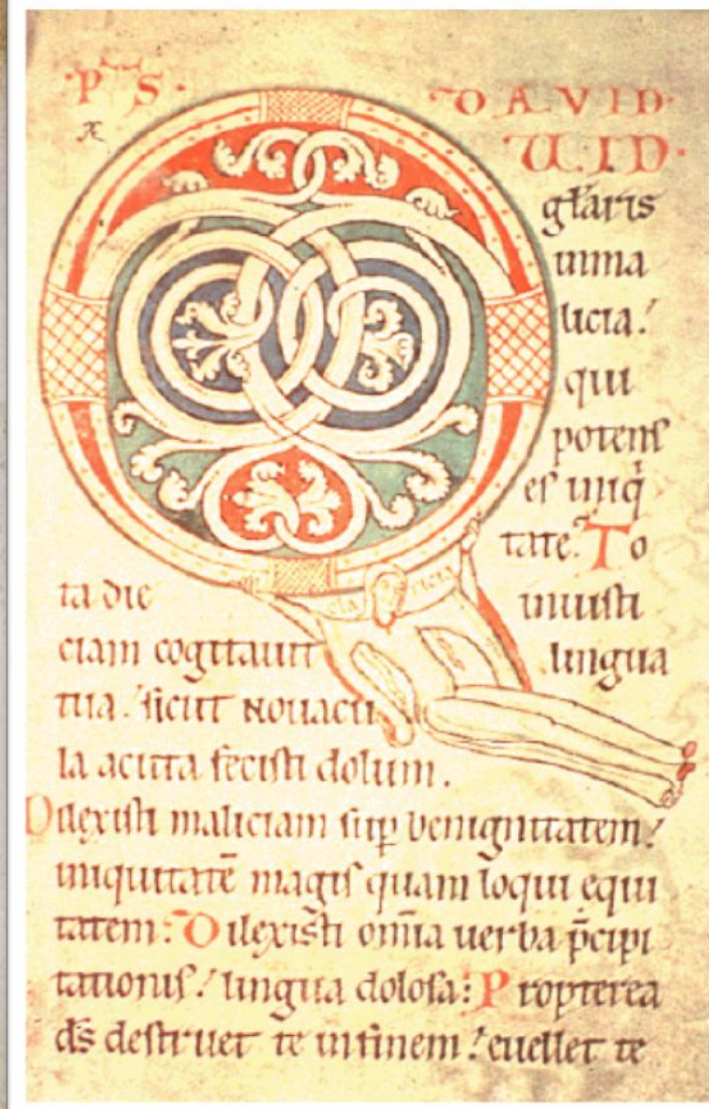 ·PS· DAVID·
Æ
QUID·
gl̄aris
inma
licia:
qui
potens
es iniq
tate. To
ta die iniusti
CLARICIA
ciam cogitauit lingua
tua: sicut nouacu
la acuta fecisti dolum.
Dilexisti maliciam sup̄ benignitatem:
iniquitatē magis quam loqui equi
tatem: Dilexisti om̄ia uerba p̄cipi
tationis: lingua dolosa: Propterea
d̄s destruet te infinem: euellet te